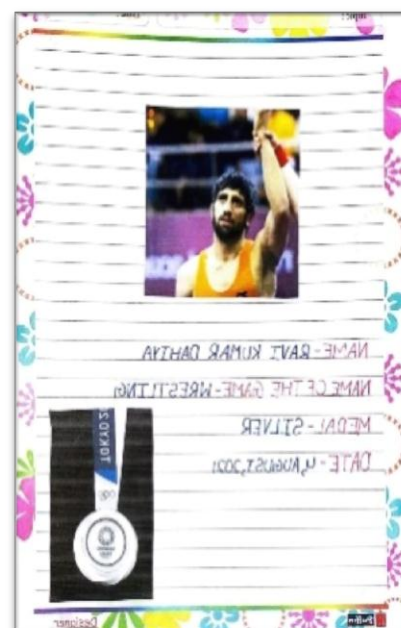 NAME - RAVI KUMAR DAHIYA
NAME OF THE GAME - WRESTLING
MEDAL - SILVER
DATE - 4, AUGUST, 2021
TOKYO 2
Designer